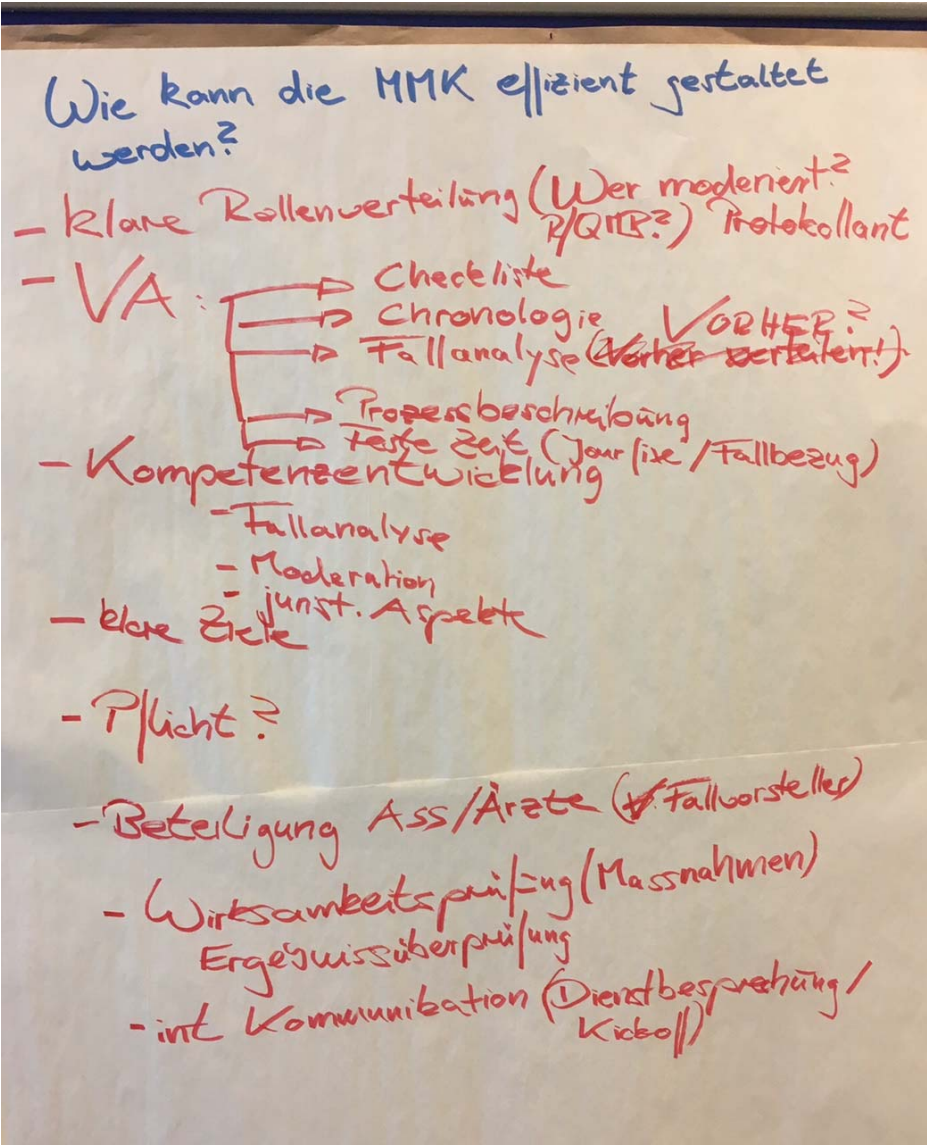 Wie kann die MMK effizient gestaltet
werden?
- klare Rollenverteilung (Wer moderiert?
R/QMB?) Protokollant
- VA:
Checkliste
Chronologie VORHER?
Fallanalyse (Vorher verteilen!)
Prozessbeschreibung
Feste Zeit (Jour fixe / Fallbezug)
- Kompetenzentwicklung
- Fallanalyse
- Moderation
- jurist. Aspekte
- klare Ziele
- Pflicht?
- Beteiligung Ass/Ärzte (Fallvorsteller)
- Wirksamkeitsprüfung (Massnahmen)
Ergebnissüberprüfung
- int Kommunikation (Dienstbesprechung /
Kickoff)